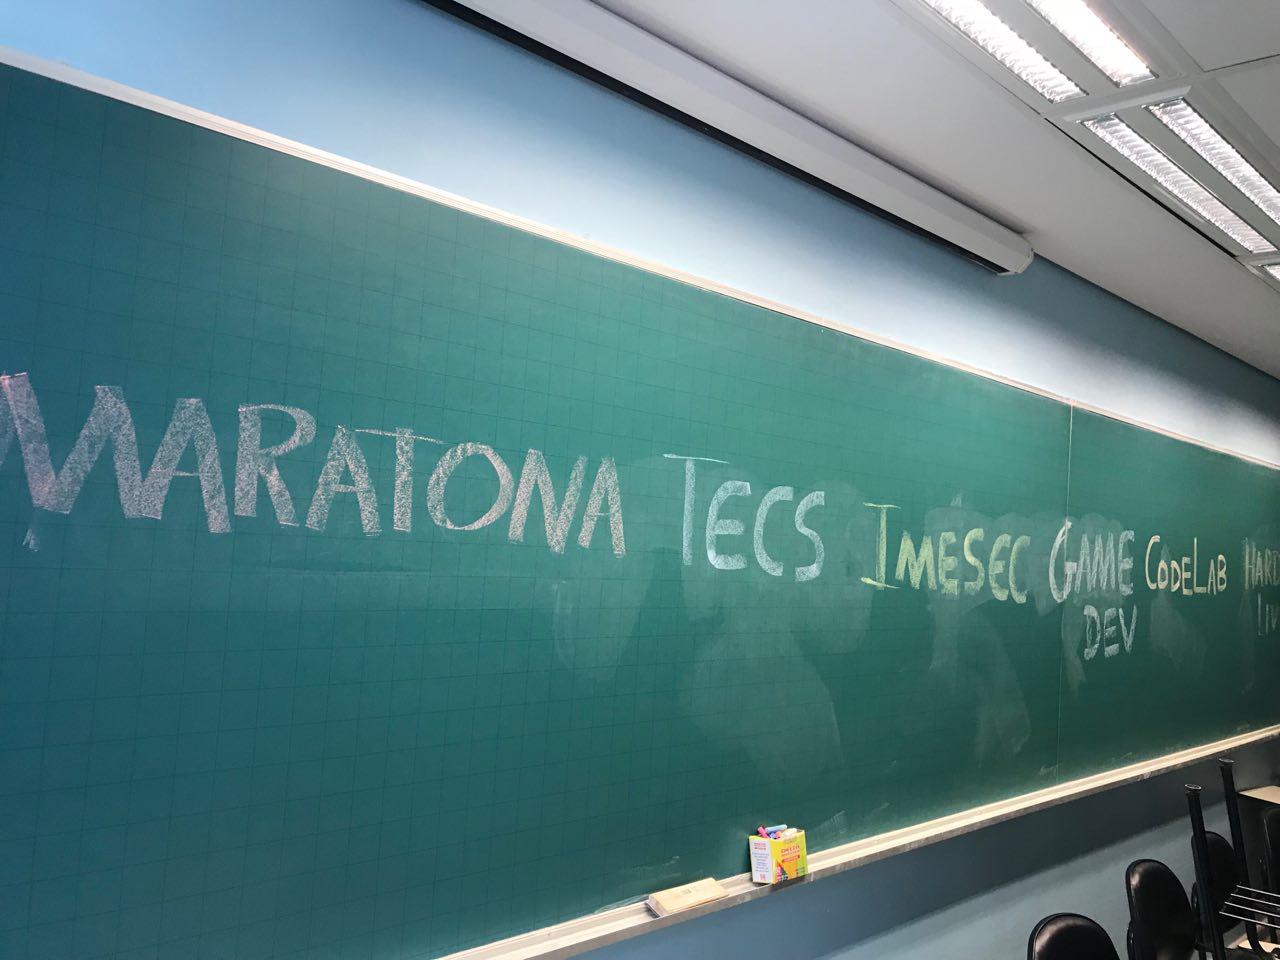 MARATONA TECS IMESEC GAME CODELAB HARD
DEV LIV